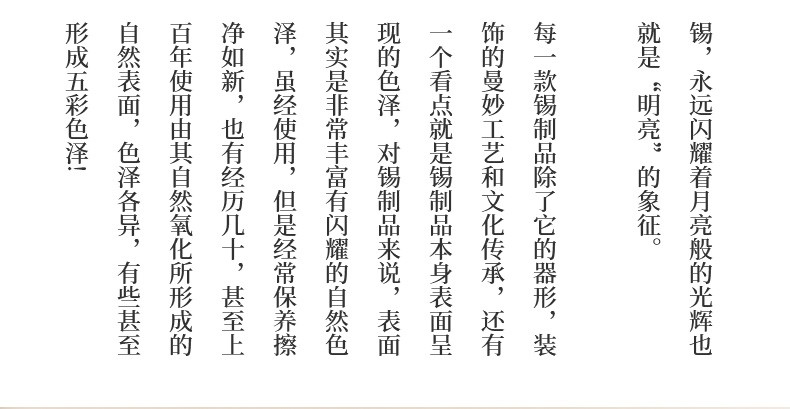 锡，永远闪耀着月亮般的光辉也
就是“明亮”的象征。
每一款锡制品除了它的器形，装
饰的曼妙工艺和文化传承，还有
一个看点就是锡制品本身表面呈
现的色泽，对锡制品来说，表面
其实是非常丰富有闪耀的自然色
泽，虽经使用，但是经常保养擦
净如新，也有经历几十，甚至上
百年使用由其自然氧化所形成的
自然表面，色泽各异，有些甚至
形成五彩色泽！